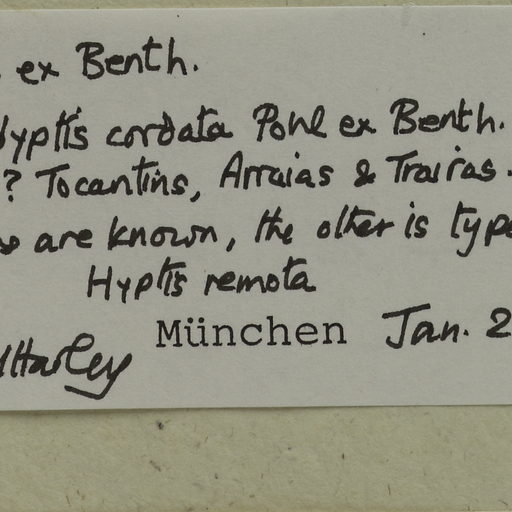 ex Benth.
Hyptis cordata Pohl ex Benth.
? Tocantins, Arraias & Trairas.
are known, the other is type
Hyptis remota
Harley München Jan. 2